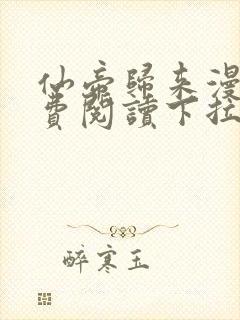 仙帝歸來漫
費閱讀下拉
醉寒玉